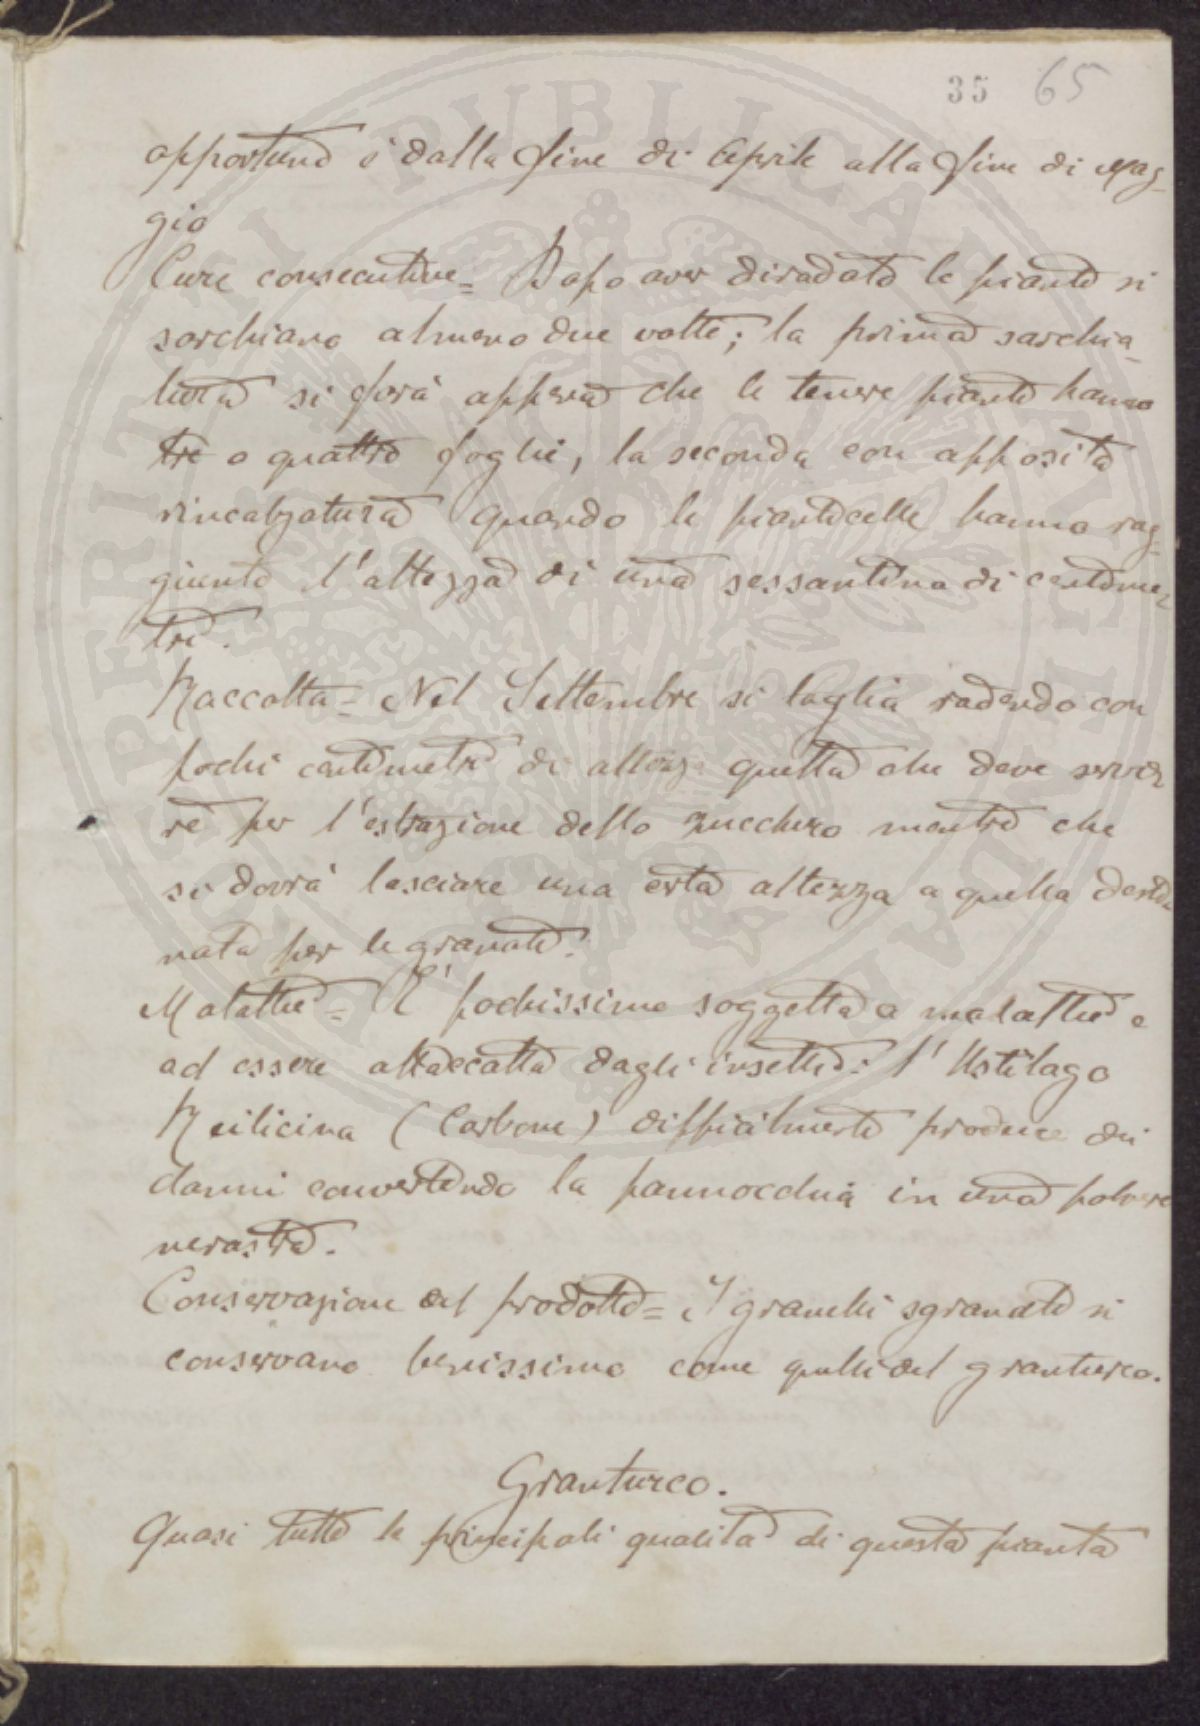 35 65
opportuna è dalla fine di Aprile alla fine di Mag-
gio
Cure consecutive = Dopo aver diradate le piante si
sarchiano almeno due volte; la prima sarchia-
tura si farà appena che le tenere piante hanno
tre o quattro foglie, la seconda con apposita
rincalzatura quando le pianticelle hanno rag-
giunto l'altezza di una sessantina di centime-
tri.
Raccolta = Nel Settembre si taglia radendo con
pochi centimetri di altezz quella che deve servi-
re per l'estrazione dello zucchero mentre che
si dovrà lasciare una certa altezza a quella desti-
nata per le granate.
Malattie = È pochissimo soggetta a malattie e
ad essere attaccatta dagli insetti: l'Ustilago
Reilicina (Carbone) difficilmente produce dei
danni convertendo la pannocchia in una polvere
nerastra.
Conservazione del prodotto = I granelli sgranati si
conservano benissimo come quelli del granturco.
Granturco.
Quasi tutte le principali qualità di questa pianta
PERITI PUBLICAE FELICITATIS
PROSPERITATIS AUCTOR